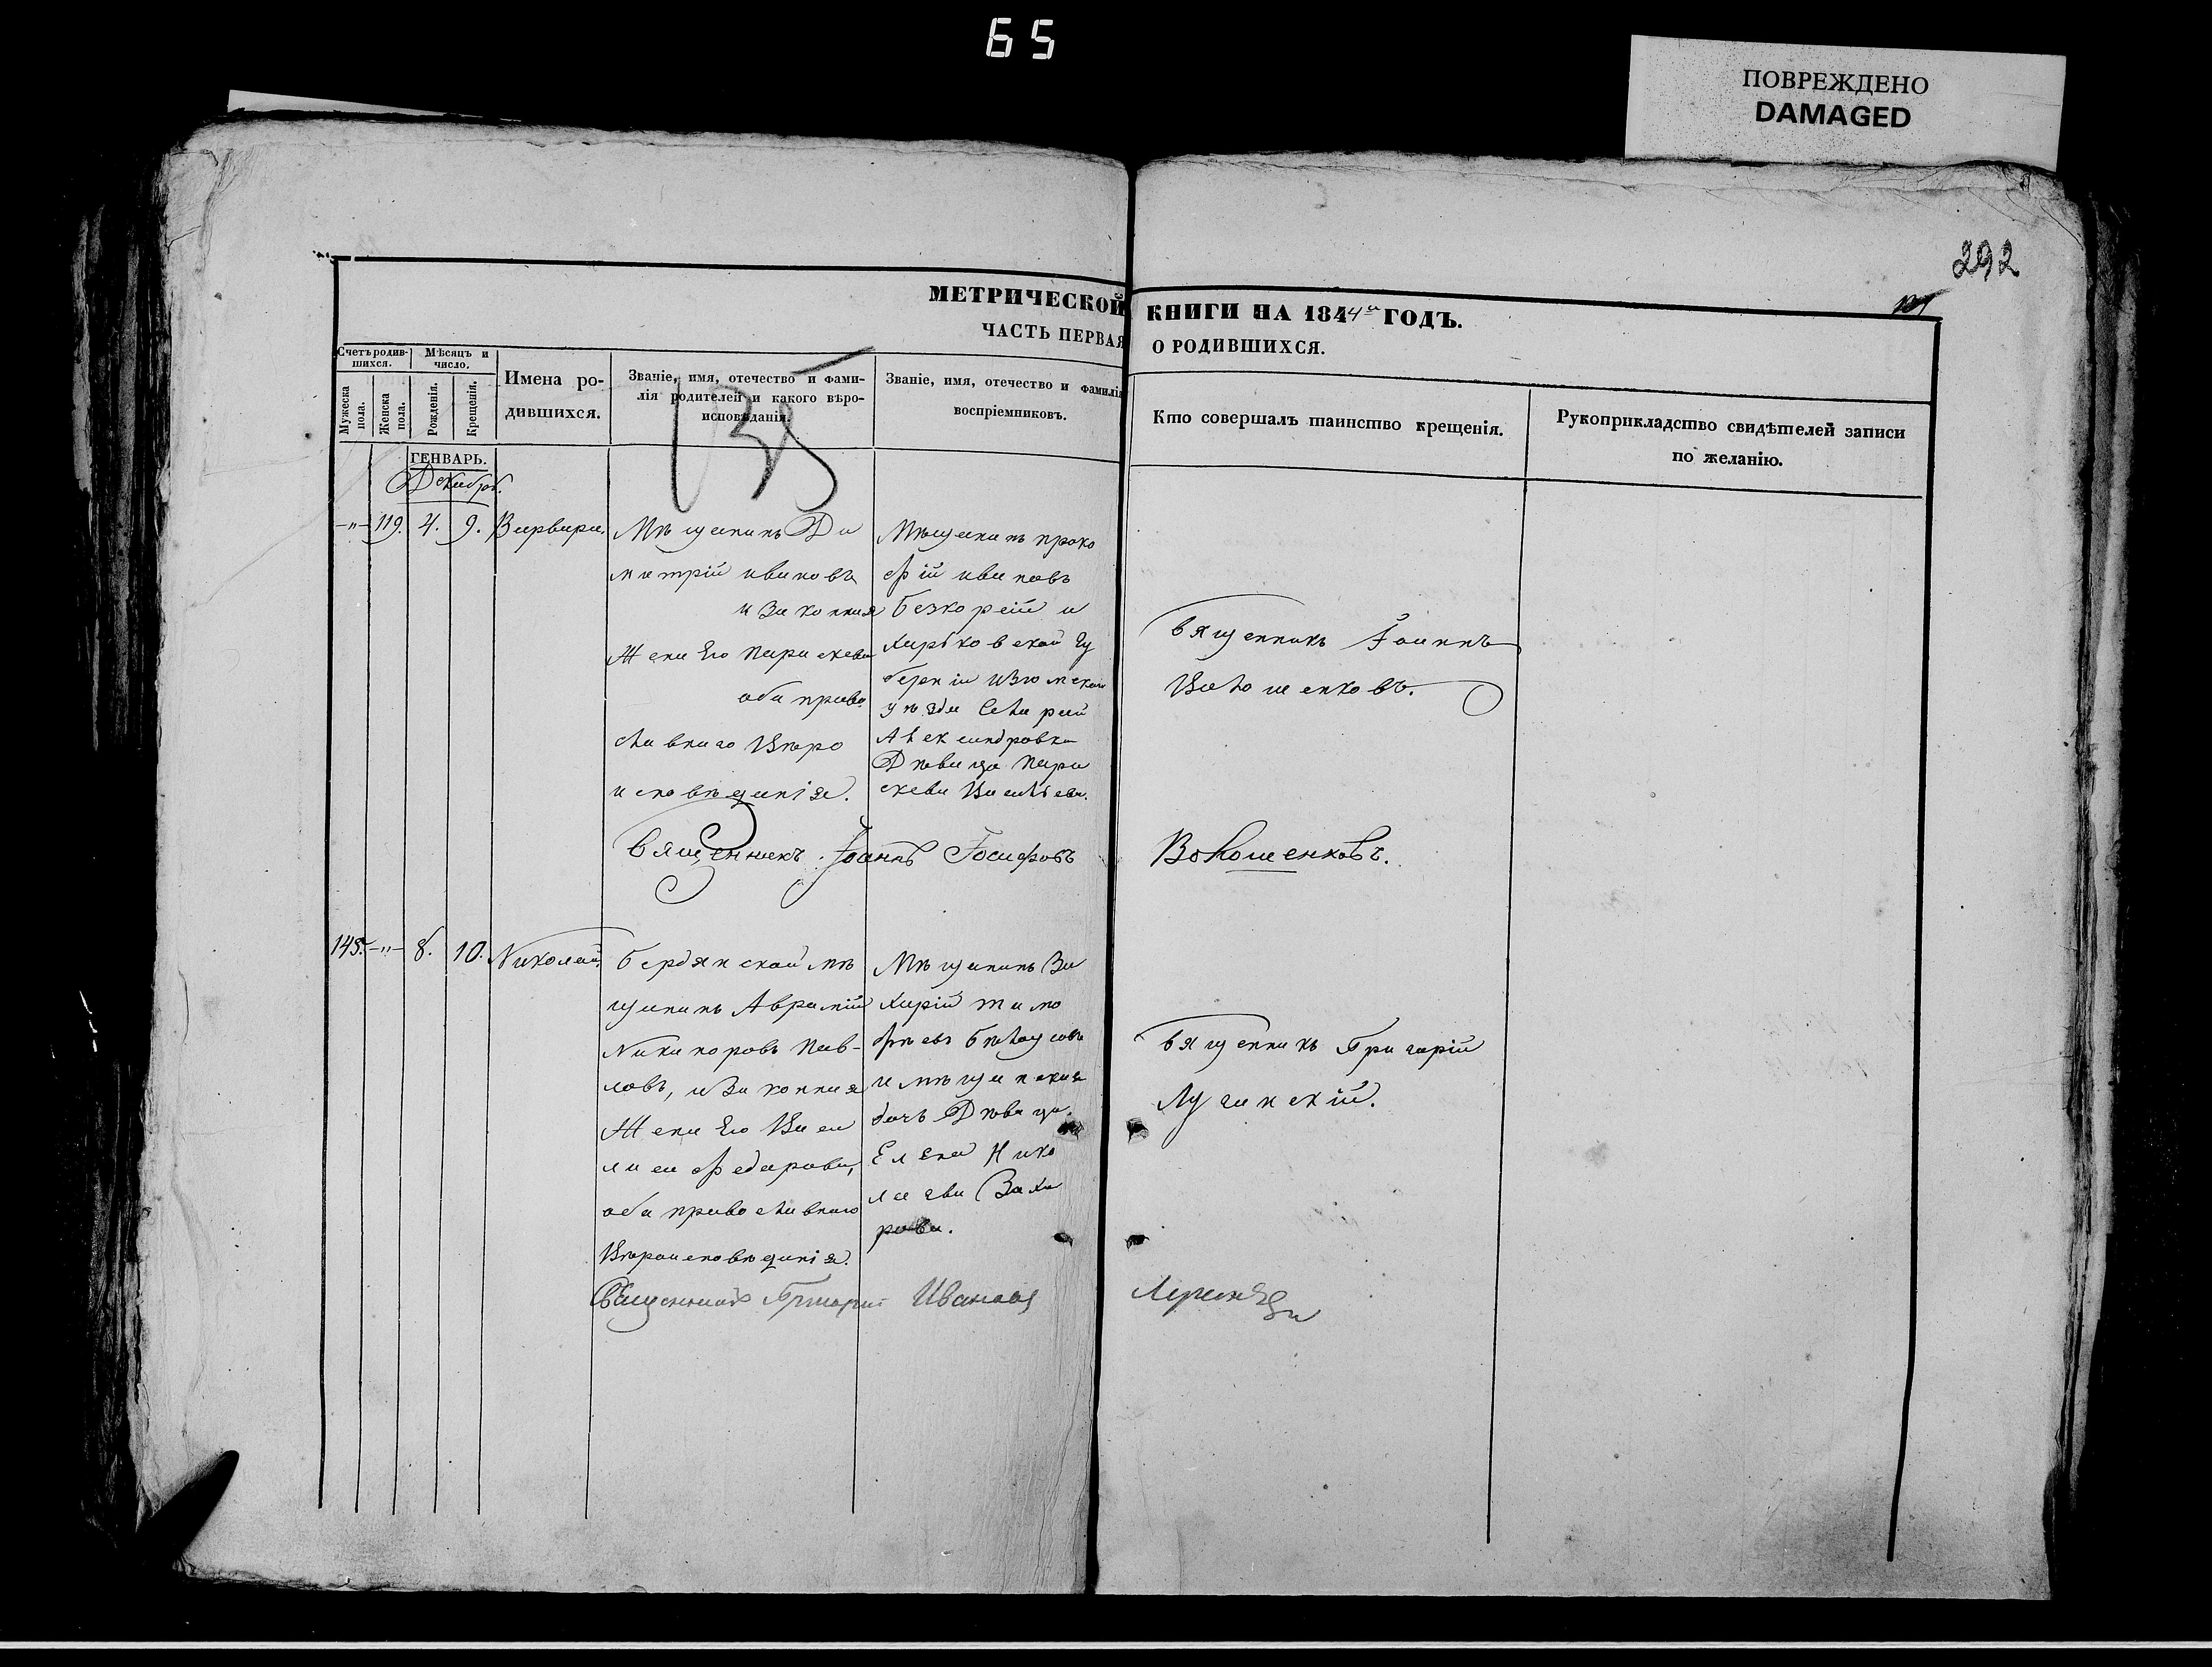 65
ПОВРЕЖДЕНО
DAMAGED
292
МЕТРИЧЕСКОЙ КНИГИ НА 1844й ГОДЪ.
ЧАСТЬ ПЕРВАЯ О РОДИВШИХСЯ.
Счетъ родив-
шихся.
Мужеска пола.
Женска пола.
Мѣсяцъ и
число.
Рожденія.
Крещенія.
Имена ро-
дившихся.
Званіе, имя, отечество и фами-
лія родителей и какого вѣро-
исповѣданія.
Званіе, имя, отечество и фамилія
воспріемниковъ.
Кто совершалъ таинство крещенія.
Рукоприкладство свидѣтелей записи
по желанію.
135
ГЕНВАРЬ.
Декабрь.
-"- 119. 4. 9. Варвара.
Мѣщанинъ Ди
митрій ивановъ
и Законная
Жена Его Параскева
оба право
славнаго Вѣро
исповѣданія.
Мѣщанинъ проко
фій ивановъ
Безкорсій и
Харьковской гу
берніи Изюмскаго
уѣзда Старой
Александровки
Дѣвица Пара
скева Васильева.
Священникъ Іоаннъ
Волошенковъ.
Священникъ Іоаннъ Іосифовъ Волошенковъ.
145. -"- 8. 10. Николай.
Бердянской мѣ
щанинъ Аврамій
Никаноровъ Пав-
ловъ, и Законная
Жена Его Васи
лиса Федорова,
оба православнаго
Вѣроисповѣданія.
Мѣщанинъ За
харій тимо
фѣевъ Бѣлоусовъ
и мѣщанская
дочь Дѣвица
Елена Нико
лаева Заха
рова.
Священникъ Григорій
Лугинскій.
Священникъ Григорій Ивановъ